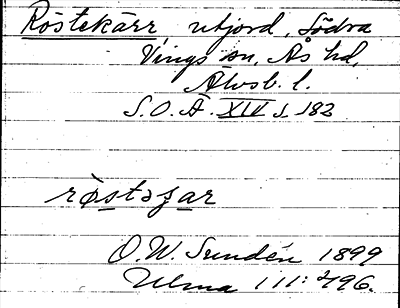 Röstekärr, utjord, Södra
Vings sn, Ås hd,
Älvsb. l.
S.O.Ä. XIV s. 182
rö̀stəʒar
O.W. Sundén 1899
Ulma 111:496.